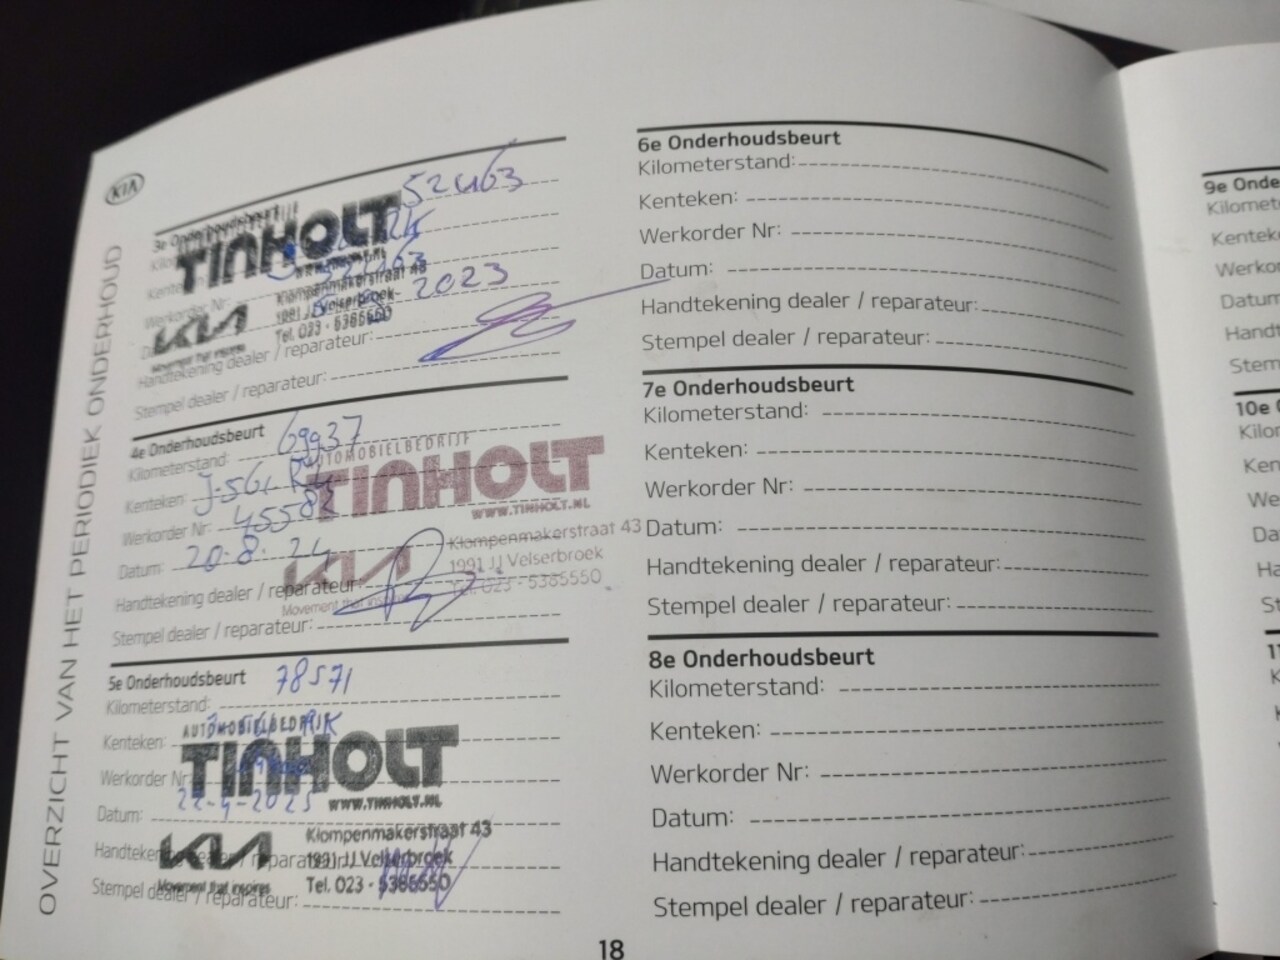 KIA
OVERZICHT VAN HET PERIODIEK ONDERHOUD
3e Onderhoudsbeurt
52463
TINHOLT
Klompenmakerstraat 43
1991 JJ Velserbroek
2023
KIA
Tel. 023 - 5385550
Movement that inspires
Handtekening dealer / reparateur:
Stempel dealer / reparateur:
4e Onderhoudsbeurt
Kilometerstand: 69937
AUTOMOBIELBEDRIJF
TINHOLT
WWW.TINHOLT.NL
Kenteken:
Werkorder Nr: 45583
Datum: 20-8-24
KIA
Klompenmakerstraat 43
1991 JJ Velserbroek
Tel. 023 - 5385550
Handtekening dealer / reparateur:
Movement that inspires
Stempel dealer / reparateur:
5e Onderhoudsbeurt 78571
Kilometerstand:
AUTOMOBIELBEDRIJF
Kenteken:
TINHOLT
Werkorder Nr:
WWW.TINHOLT.NL
Datum: 22-9-2025
KIA
Klompenmakerstraat 43
Handtekening dealer / reparateur:
1991 JJ Velserbroek
Movement that inspires
Tel. 023 - 5385550
Stempel dealer / reparateur:
6e Onderhoudsbeurt
Kilometerstand:
Kenteken:
Werkorder Nr:
Datum:
Handtekening dealer / reparateur:
Stempel dealer / reparateur:
7e Onderhoudsbeurt
Kilometerstand:
Kenteken:
Werkorder Nr:
Datum:
Handtekening dealer / reparateur:
Stempel dealer / reparateur:
8e Onderhoudsbeurt
Kilometerstand:
Kenteken:
Werkorder Nr:
Datum:
Handtekening dealer / reparateur:
Stempel dealer / reparateur:
18
9e Onde
Kilomet
Kentek
Werko
Datum
Handt
Stem
10e
Kilo
Ken
We
Da
Ha
St
11